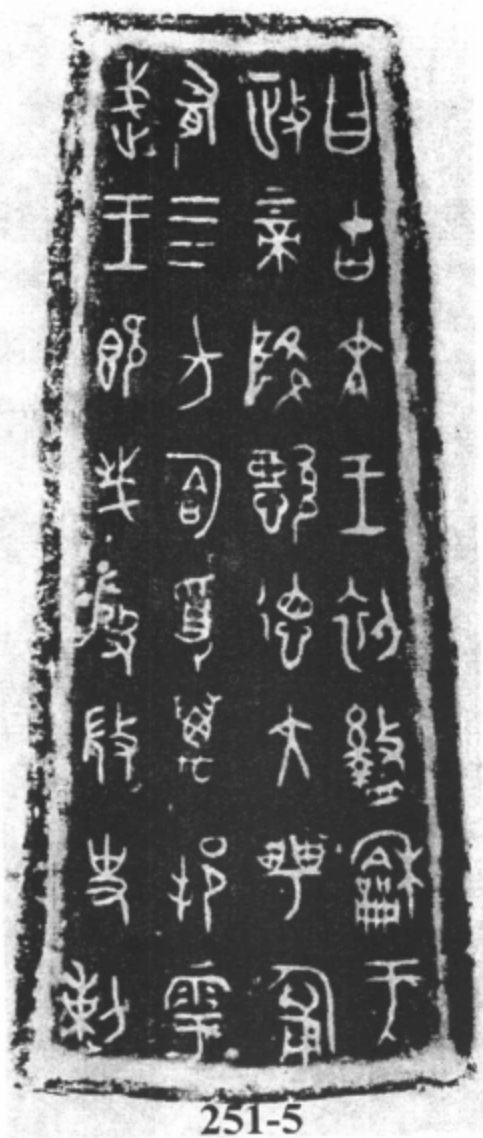 曰古文王初盭龢于
政上帝降懿德大甹匍
有四方匌受萬邦雩
武王既𢦏殷微史剌
251-5